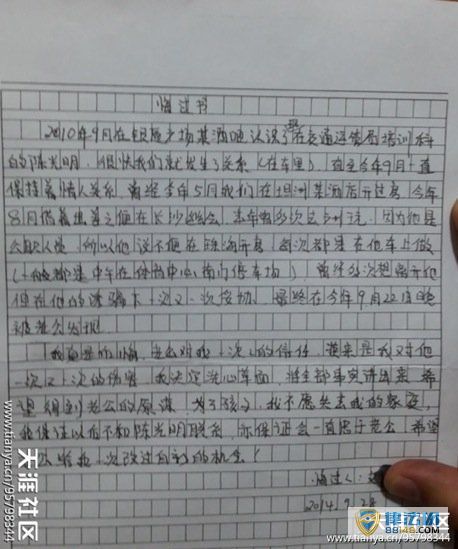 悔过书
2010年9月在银    广场某酒吧认识了在交通运管局培训科
的陈光明。很快我们就发生了关系(在车里)。直至今年9月一直
保持着情人关系。曾经去年5月我们在    洲某酒店开过房,今年
8月借着出差之便在长沙    会。去年        次去    玩。因为他是
公职人员,所以他说不便在    海开房,每次都是在他车上做
(一般都是中午在体育中心南门停车场)。曾经多次想离开他
但在他的诱骗下一次又一次成功。最终在今年9月22日晚
被老公发现。
我        悔,老公对我一次次的信任,换来是我又给他
一次又一次的伤害。我决定洗心革面,将全部事实讲出来,希
望得到老公的原谅。为了孩子,我不愿失去我的家庭,
我保证以后不和陈光明联系,亦保证会一直忠于老公。希望
公给我一次改过自新的机会!
悔过人:
2014.9.28
天涯社区
www.tianya.cn/95798344
天涯社区
www.tianya.cn/95798344
律法网
88148.com